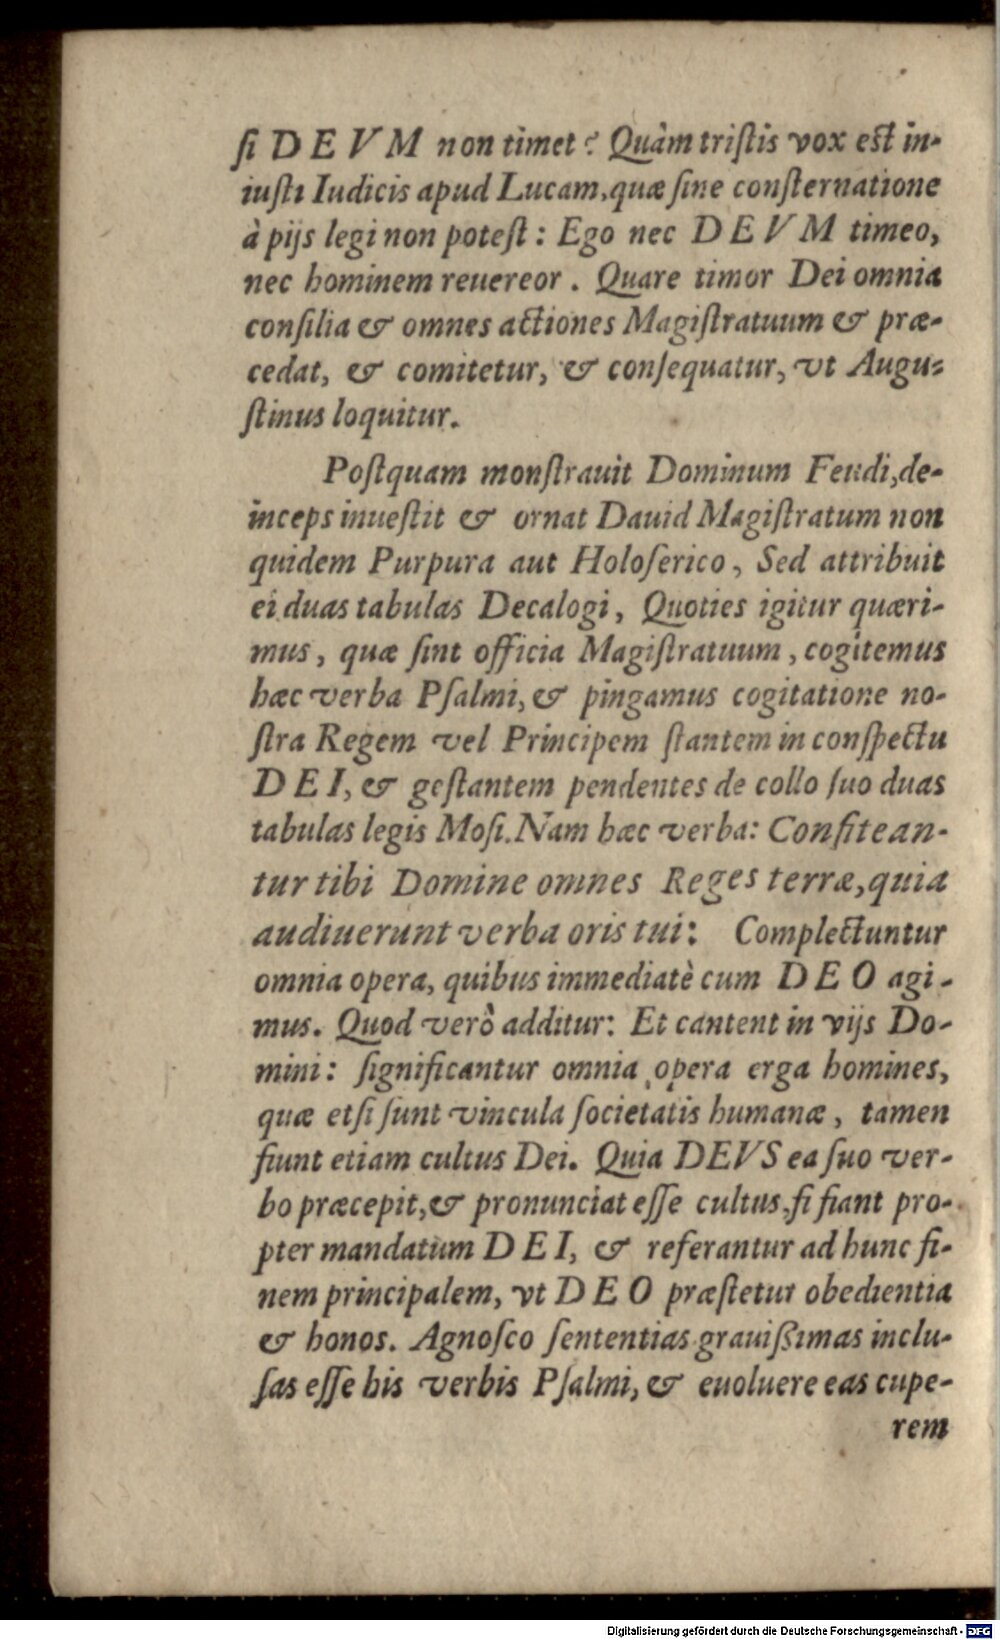 ſi DEVM non timet? Quàm triſtis vox eſt in-
iuſti Iudicis apud Lucam, quæ ſine conſternatione
à pijs legi non poteſt: Ego nec DEVM timeo,
nec hominem reuereor. Quare timor Dei omnia
conſilia & omnes actiones Magiſtratuum & præ-
cedat, & comitetur, & conſequatur, vt Augu-
ſtinus loquitur.
Poſtquam monſtrauit Dominum Feudi, de-
inceps inueſtit & ornat Dauid Magiſtratum non
quidem Purpura aut Holoſerico, Sed attribuit
ei duas tabulas Decalogi, Quoties igitur quæri-
mus, quæ ſint officia Magiſtratuum, cogitemus
hæc verba Pſalmi, & pingamus cogitatione no-
ſtra Regem vel Principem ſtantem in conſpectu
DEI, & geſtantem pendentes de collo ſuo duas
tabulas legis Moſi. Nam hæc verba: Confitean-
tur tibi Domine omnes Reges terræ, quia
audiuerunt verba oris tui: Complectuntur
omnia opera, quibus immediatè cum DEO agi-
mus. Quod verò additur: Et cantent in vijs Do-
mini: ſignificantur omnia opera erga homines,
quæ etſi ſunt vincula ſocietatis humanæ, tamen
fiunt etiam cultus Dei. Quia DEVS ea ſuo ver-
bo præcepit, & pronunciat eſſe cultus, ſi fiant pro-
pter mandatum DEI, & referantur ad hunc fi-
nem principalem, vt DEO præſtetur obedientia
& honos. Agnoſco ſententias grauißimas inclu-
ſas eſſe his verbis Pſalmi, & euoluere eas cupe-
rem
Digitalisierung gefördert durch die Deutsche Forschungsgemeinschaft - DFG